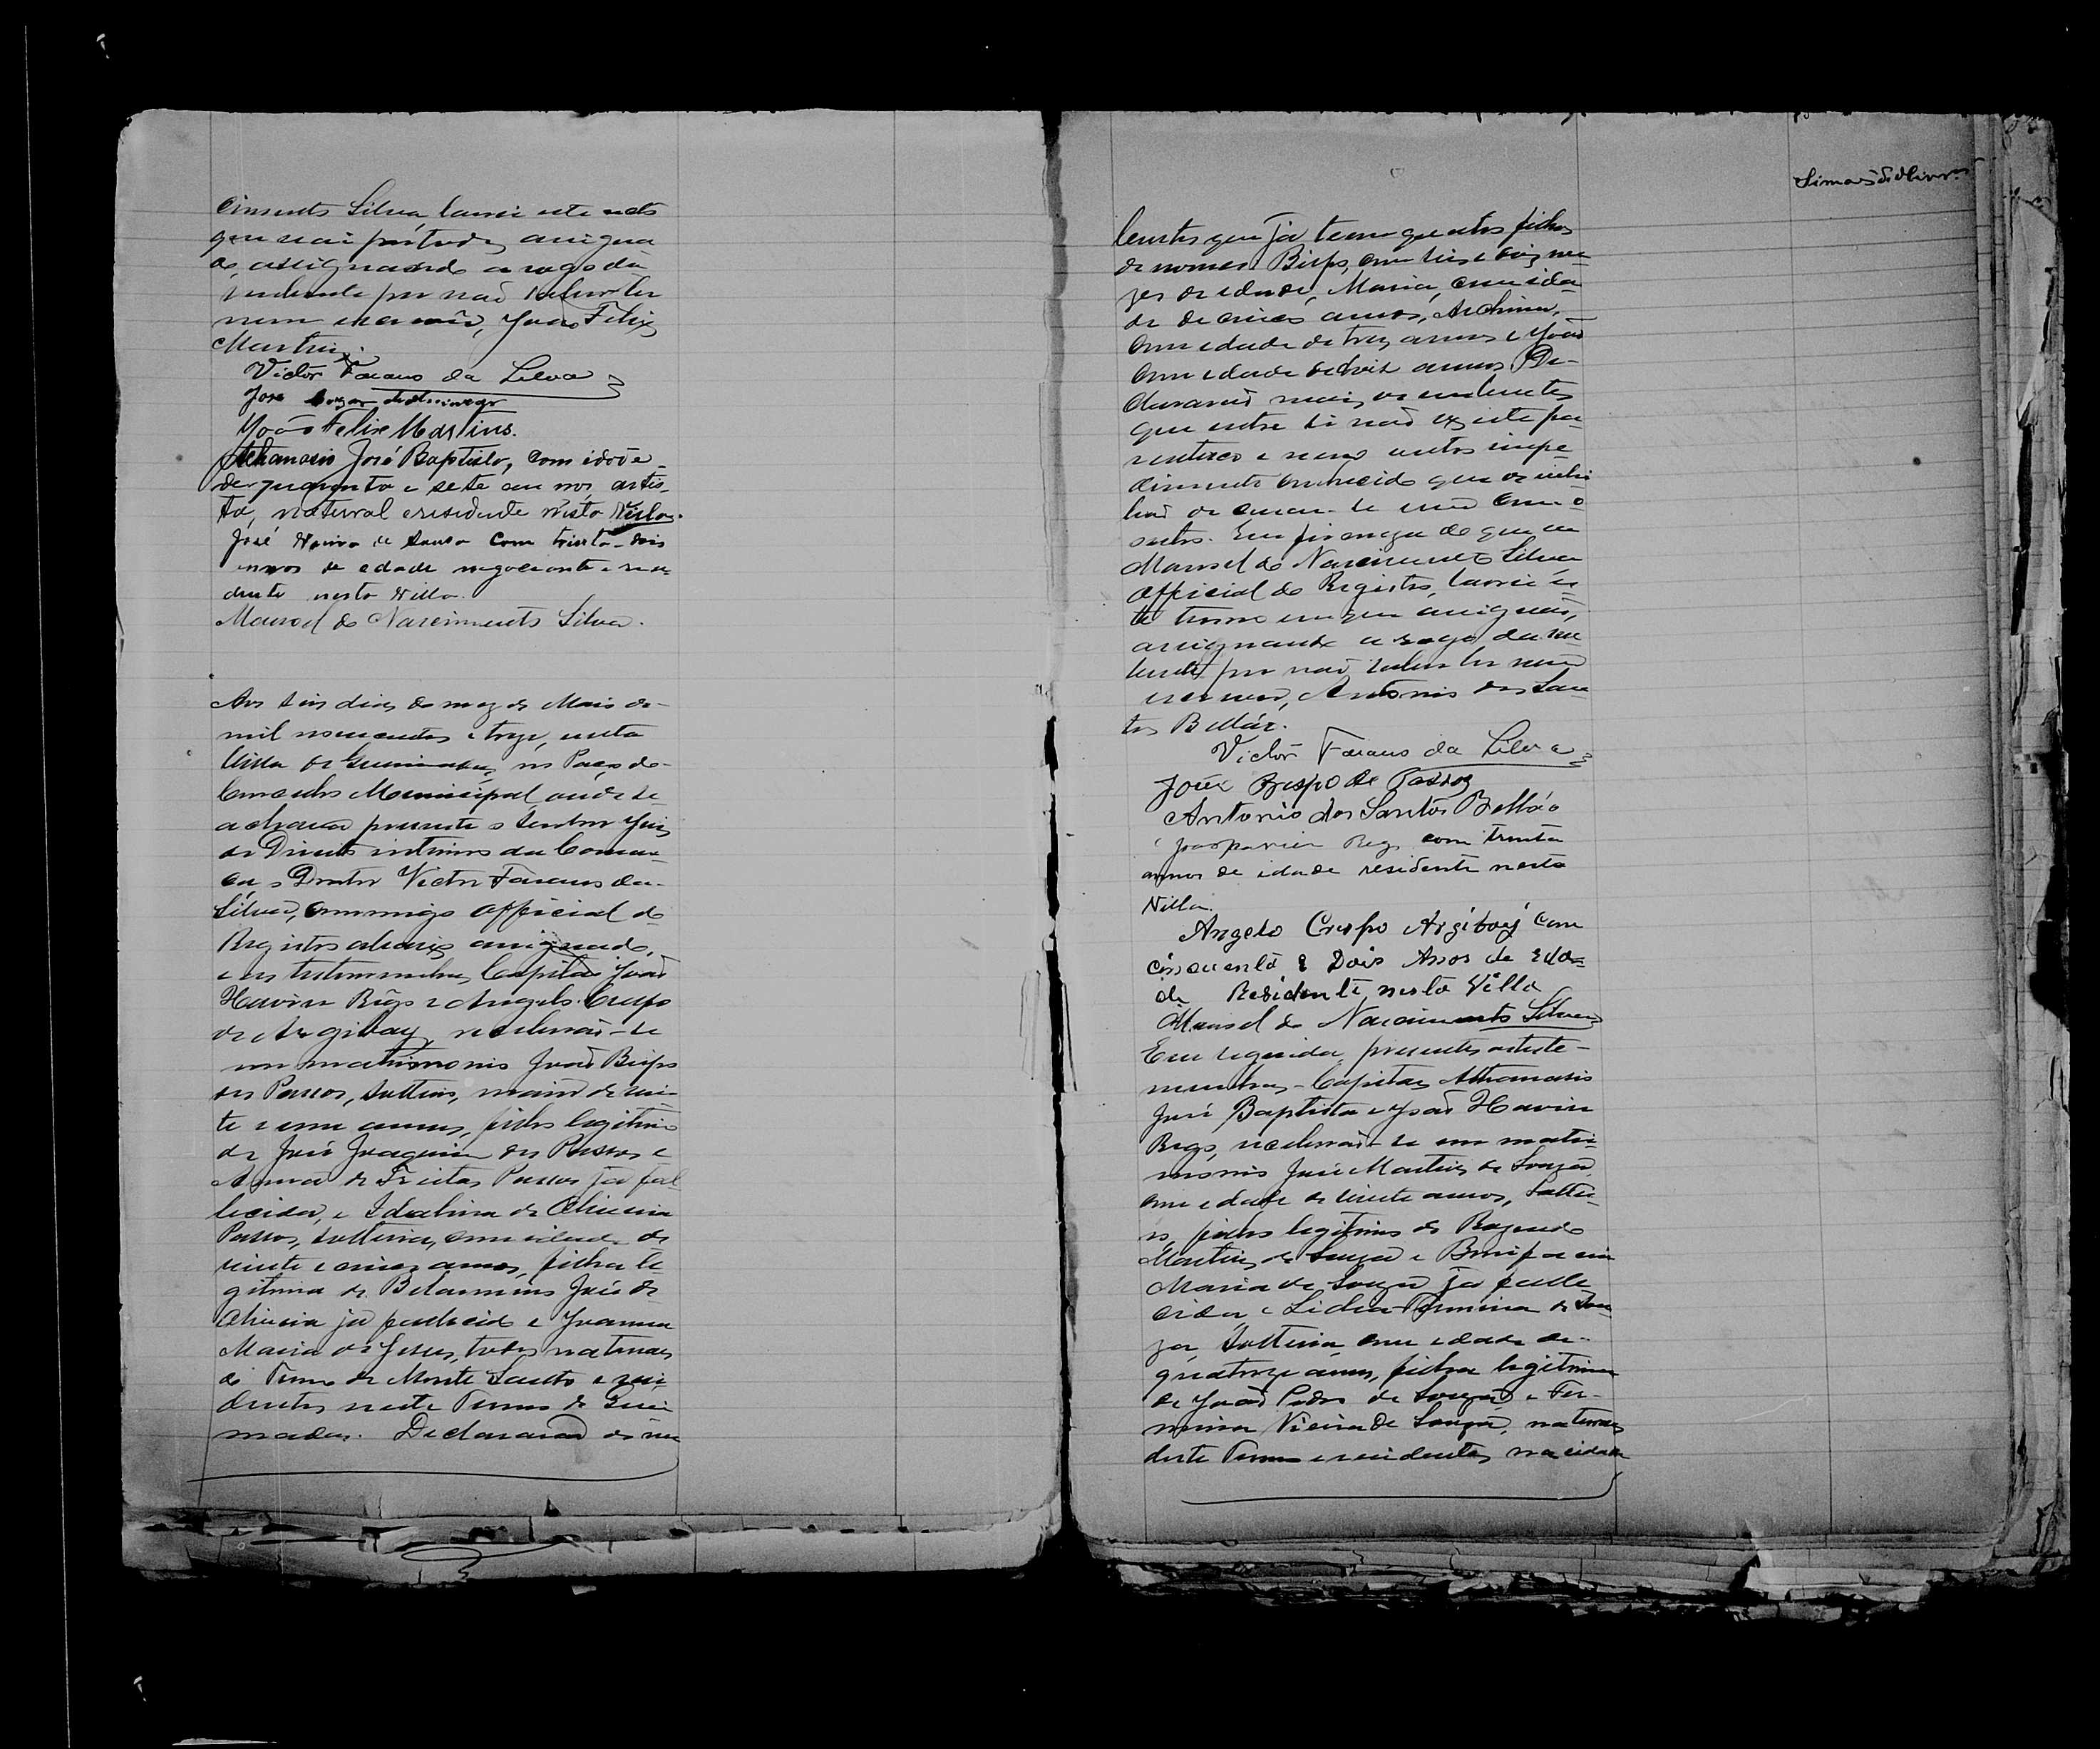 cimento Silva lavrei este acto
que vai por todos assigna
do, assignando a rogo da
nubente por não saber ler
nem escrever, João Felix
Martins.
Victor Faraus da Silva
José
João Felix Martins.
Athanasio José Baptista, com idade
de quarenta e sete annos, artis-
ta, natural e residente nesta Villa.
José de Souza com trinta dois
annos de edade negociante e resi-
dente nesta Villa.
Manoel do Nascimento Silva.
Aos seis dias do mez de Maio de
mil novecentos e treze, nesta
Villa de Queimadas, no Paço do
Conselho Municipal, onde se
achava presente o Senhor Juiz
de Direito interino da Comar-
ca, o Doutor Victor Faraus da
Silva, commigo official do
Registro abaixo assignado,
e as testemunhas, Capitão João
Havier Rego e Angelo Crespo
de Argibay, receberão-se
em matrimonio João Bispo
dos Passos, solteiro, maior de vin-
te e um annos, filho legitimo
de José Joaquim dos Passos e
Anna de Freitas Passos já fal-
lecida, e Idalina de Oliveira
Passos, solteira, com idade de
vinte e cinco annos, filha le-
gitima de Belarmino José de
Oliveira já fallecido e Joanna
Maria de Jesus, todos naturaes
do Termo de Monte Santo e resi-
dentes neste Termo de Quei-
madas. Declararão os nu
Simão de Oliveira
bentes que já tem quatro filhos
de nomes Bispo, com seis e dois me-
zes de edade, Maria, com ida-
de de cinco annos, Archimi,
com edade de tres annos e João
com edade de dois annos. De-
clararão mais os nubentes
que entre si não existe pa-
rentesco e nem outro impe
dimento conhecido que os inhi
bão de casar-se um com o
outro. Em firmeza do que eu
Manoel do Nascimento Silva
official do Registro, lavrei es
te termo em que assignão,
assignando a rogo da nu
bente por não saber ler nem
escrever, Antonio dos San
tos Bellão.
Victor Faraus da Silva
João Bispo de Passos
Antonio dos Santos Bellão
João Xavier Rego com trinta
annos de idade residente nesta
Villa.
Angelo Crespo Argibay com
cincuenta e Dois Anos de Eda-
de Residente nesta Villa
Manoel do Nascimento Silva
Em seguida, presentes as teste-
munhas, Capitão Athanasio
José Baptista e João Havier
Rego, receberão-se em matri-
monio José Martins de Souza
com edade de vinte annos, soltei-
ro, filho legitimo de Rozendo
Martins de Souza e Bonifacia
Maria de Souza já falle
cida, e Lidia Firmina de Sou
za, solteira com edade de
quatorze annos, filha legitima
de João Pedro de Souza e Fir-
mina Vieira de Souza, naturaes
deste Termo e residentes na cidade